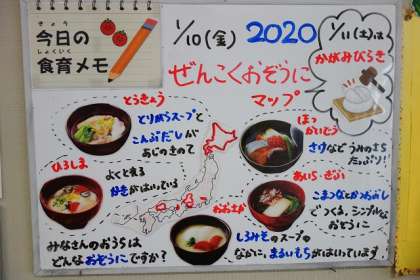 きょう
今日の
しょくいく
食育メモ
1/10(金) 2020
ぜんこくおぞうに
マップ
1/11(土)は
かがみびらき
とうきょう
とりがらスープと
こんぶだしが
あじのきめて
ほっ
かいどう
さけなどうみのさち
たっぷり!
ひろしま
よくと見る
好きがはいっている
あいち・ぎふ
こまつなとかつおだし
でつくる、シンプルな
おぞうに
おおさか
しろみそのスープの
なかに、まるいもちがはいっています
みなさんのおうちは
どんなおぞうにですか?